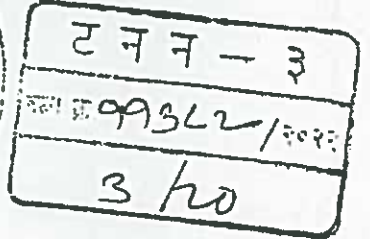 ट न न - ३
११३८२/२०२२
3 /20